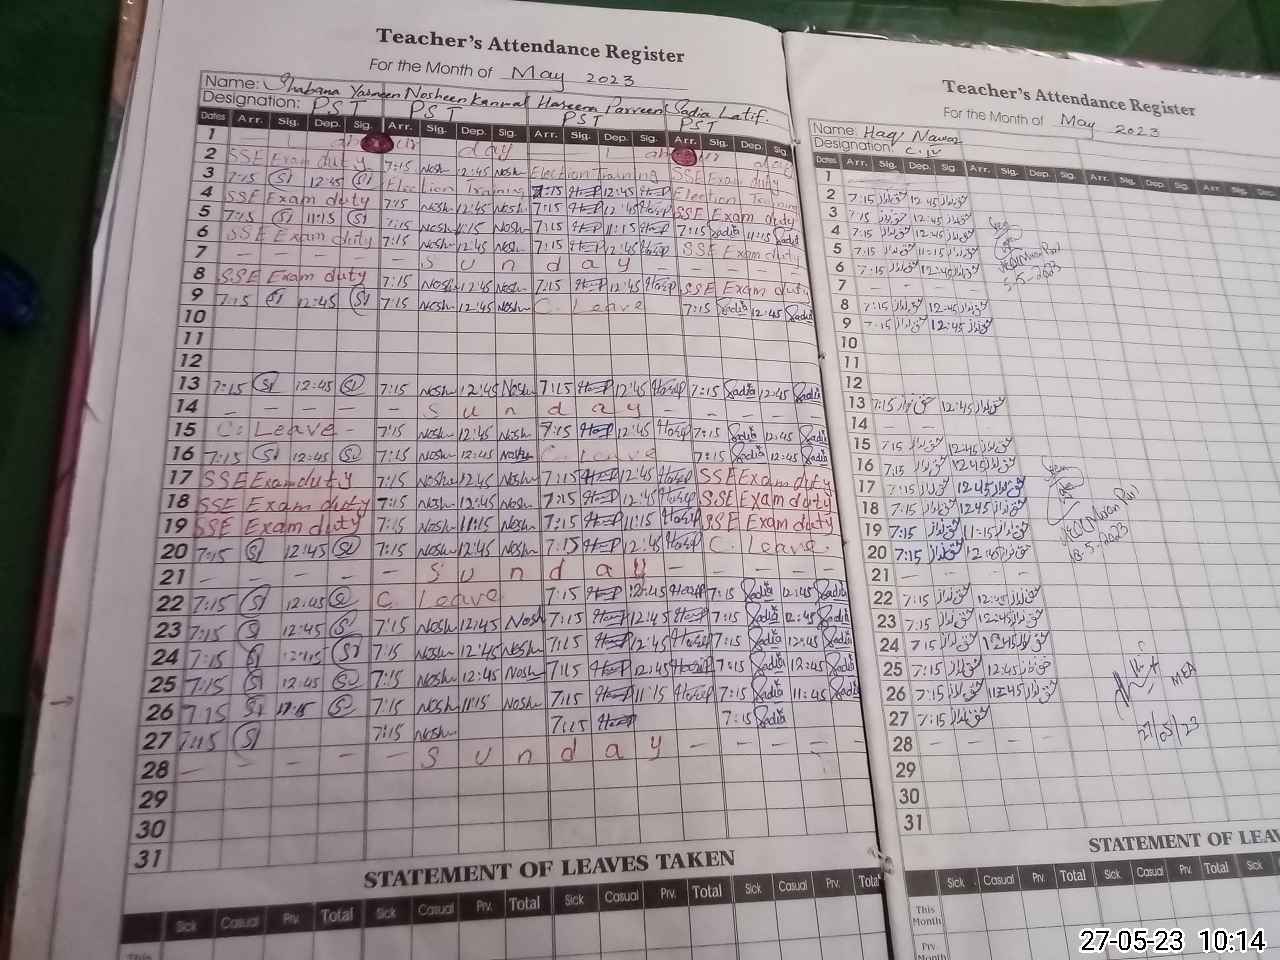 Teacher's Attendance Register
For the Month of May 2023
Name: Shabana Yasmeen Nosheen Kanwal Haseena Parveen Sadia Latif.
Designation: PST PST PST PST
Dates Arr. Sig. Dep. Sig. Arr. Sig. Dep. Sig. Arr. Sig. Dep. Sig. Arr. Sig. Dep. Sig
1 Labour day Labour day
2 SSE Exam duty 7:15 Nosh 12:45 Nosh Election Training SSE Exam duty
3 7:15 S 12:45 S Election Training 7:15 12:45 Election Training
4 SSE Exam duty 7:15 Nosh 12:45 Nosh 7:15 12:45 SSE Exam duty
5 7:15 S 11:15 S 7:15 Nosh 11:15 Nosh 7:15 11:15 7:15 Sadia 11:15 Sadia
6 SSE Exam duty 7:15 Nosh 12:45 Nosh 7:15 12:45 SSE Exam duty
7 – – – – – Sunday – – – – –
8 SSE Exam duty 7:15 Nosh 12:45 Nosh 7:15 12:45 SSE Exam duty
9 7:15 S 12:45 S 7:15 Nosh 12:45 Nosh C. Leave 7:15 Sadia 12:45 Sadia
10
11
12
13 7:15 S 12:45 S 7:15 Nosh 12:45 Nosh 7:15 12:45 7:15 Sadia 12:45 Sadia
14 – – – – – Sunday – – – – –
15 C. Leave – 7:15 Nosh 12:45 Nosh 7:15 12:45 7:15 Sadia 12:45 Sadia
16 7:15 S 12:45 S 7:15 Nosh 12:45 Nosh C. Leave 7:15 Sadia 12:45 Sadia
17 SSE Exam duty 7:15 Nosh 12:45 Nosh 7:15 12:45 SSE Exam duty
18 SSE Exam duty 7:15 Nosh 12:45 Nosh 7:15 12:45 SSE Exam duty
19 SSE Exam duty 7:15 Nosh 11:15 Nosh 7:15 11:15 SSE Exam duty
20 7:15 S 12:45 S 7:15 Nosh 12:45 Nosh 7:15 12:45 C. Leave.
21 – – – – – Sunday
22 7:15 S 12:45 S C. Leave 7:15 12:45 7:15 Sadia 12:45 Sadia
23 7:15 S 12:45 S 7:15 Nosh 12:45 Nosh 7:15 12:45 7:15 Sadia 12:45 Sadia
24 7:15 S 12:45 S 7:15 Nosh 12:45 Nosh 7:15 12:45 7:15 Sadia 12:45 Sadia
25 7:15 S 12:45 S 7:15 Nosh 12:45 Nosh 7:15 12:45 7:15 Sadia 12:45 Sadia
26 7:15 S 11:15 S 7:15 Nosh 11:15 Nosh 7:15 11:15 7:15 Sadia 11:45 Sadia
27 7:15 S 7:15 Nosh 7:15 7:15 Sadia
28 – – – – – Sunday – – – – –
29
30
31
STATEMENT OF LEAVES TAKEN
Sick Casual Prv. Total Sick Casual Prv. Total Sick Casual Prv. Total Sick Casual Prv. Total
Teacher's Attendance Register
For the Month of May 2023
Name: Haq Nawaz
Designation: C.IV
Dates Arr. Sig. Dep. Sig. Arr. Sig. Dep. Sig. Arr. Sig. Dep. Sig. Arr. Sig. Dep.
1
2 7:15 حق نواز 12:45 حق نواز
3 7:15 حق نواز 12:45 حق نواز
4 7:15 حق نواز 12:45 حق نواز
5 7:15 حق نواز 11:15 حق نواز
6 7:15 حق نواز 12:45 حق نواز
5-5-2023
7 – – – –
8 7:15 حق نواز 12:45 حق نواز
9 7:15 حق نواز 12:45 حق نواز
10
11
12
13 7:15 حق نواز 12:45 حق نواز
14 – – –
15 7:15 حق نواز 12:45 حق نواز
16 7:15 حق نواز 12:45 حق نواز
17 7:15 حق نواز 12:45 حق نواز
18 7:15 حق نواز 12:45 حق نواز
19 7:15 حق نواز 11:15 حق نواز
20 7:15 حق نواز 12:45 حق نواز
18-5-2023
21 – – – –
22 7:15 حق نواز 12:45 حق نواز
23 7:15 حق نواز 12:45 حق نواز
24 7:15 حق نواز 12:45 حق نواز
25 7:15 حق نواز 12:45 حق نواز
26 7:15 حق نواز 11:45 حق نواز
MEA
27 7:15 حق نواز
27/05/23
28 – – – –
29
30
31
STATEMENT OF LEAV
Sick Casual Prv. Total Sick Casual Prv. Total Sick
This Month
Prv. Month
27-05-23 10:14